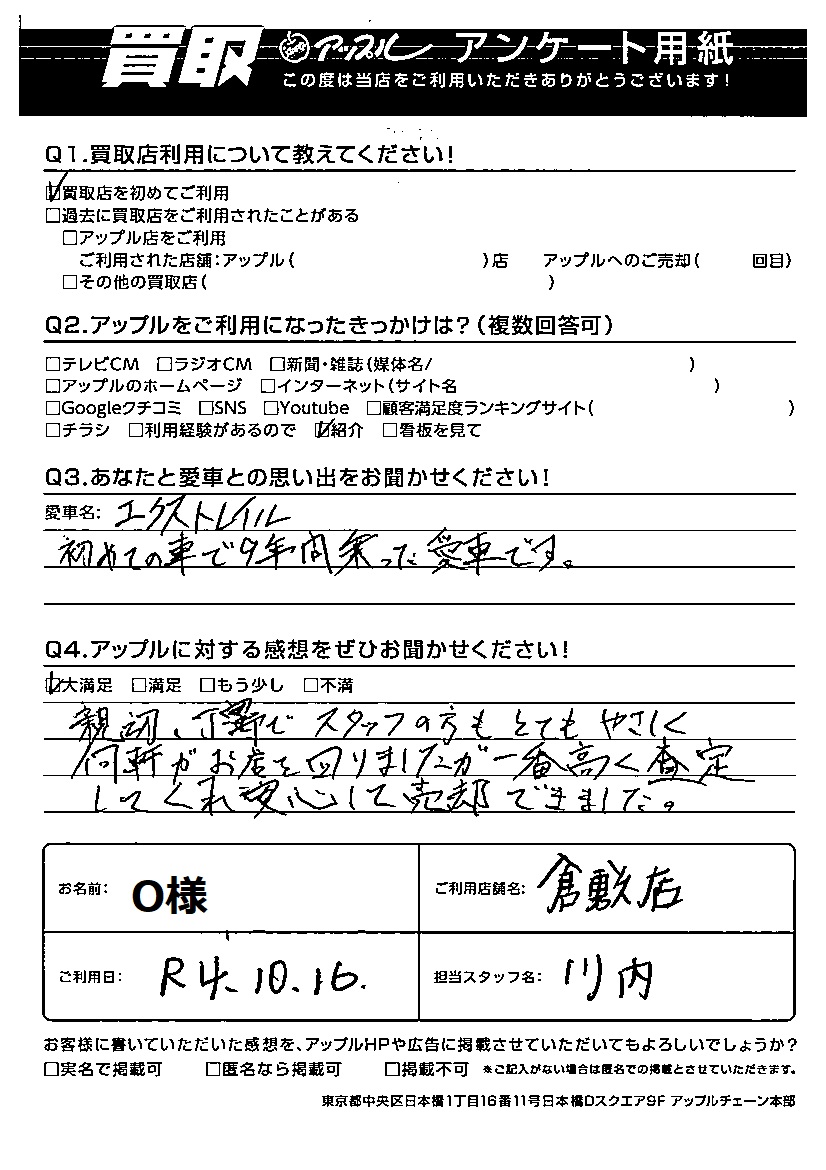 買取 アップル アンケート用紙
この度は当店をご利用いただきありがとうございます！
Q1.買取店利用について教えてください！
☑買取店を初めてご利用
□過去に買取店をご利用されたことがある
□アップル店をご利用
ご利用された店舗：アップル（　　）店　アップルへのご売却（　　回目）
□その他の買取店（　　）
Q2.アップルをご利用になったきっかけは？（複数回答可）
□テレビCM □ラジオCM □新聞・雑誌（媒体名/　　）
□アップルのホームページ □インターネット（サイト名　　）
□Googleクチコミ □SNS □Youtube □顧客満足度ランキングサイト（　　）
□チラシ □利用経験があるので ☑紹介 □看板を見て
Q3.あなたと愛車との思い出をお聞かせください！
愛車名：エクストレイル
初めての車で9年間乗った愛車です。
Q4.アップルに対する感想をぜひお聞かせください！
☑大満足 □満足 □もう少し □不満
親切、丁寧でスタッフの方もとてもやさしく
何軒がお店を回りましたが一番高く査定
してくれ安心して売却できました。
お名前：O様　ご利用店舗名：倉敷店
ご利用日：R4.10.16.　担当スタッフ名：川内
お客様に書いていただいた感想を、アップルHPや広告に掲載させていただいてもよろしいでしょうか？
□実名で掲載可 □匿名なら掲載可 □掲載不可 ※ご記入がない場合は匿名での掲載とさせていただきます。
東京都中央区日本橋1丁目16番11号日本橋Dスクエア9F アップルチェーン本部